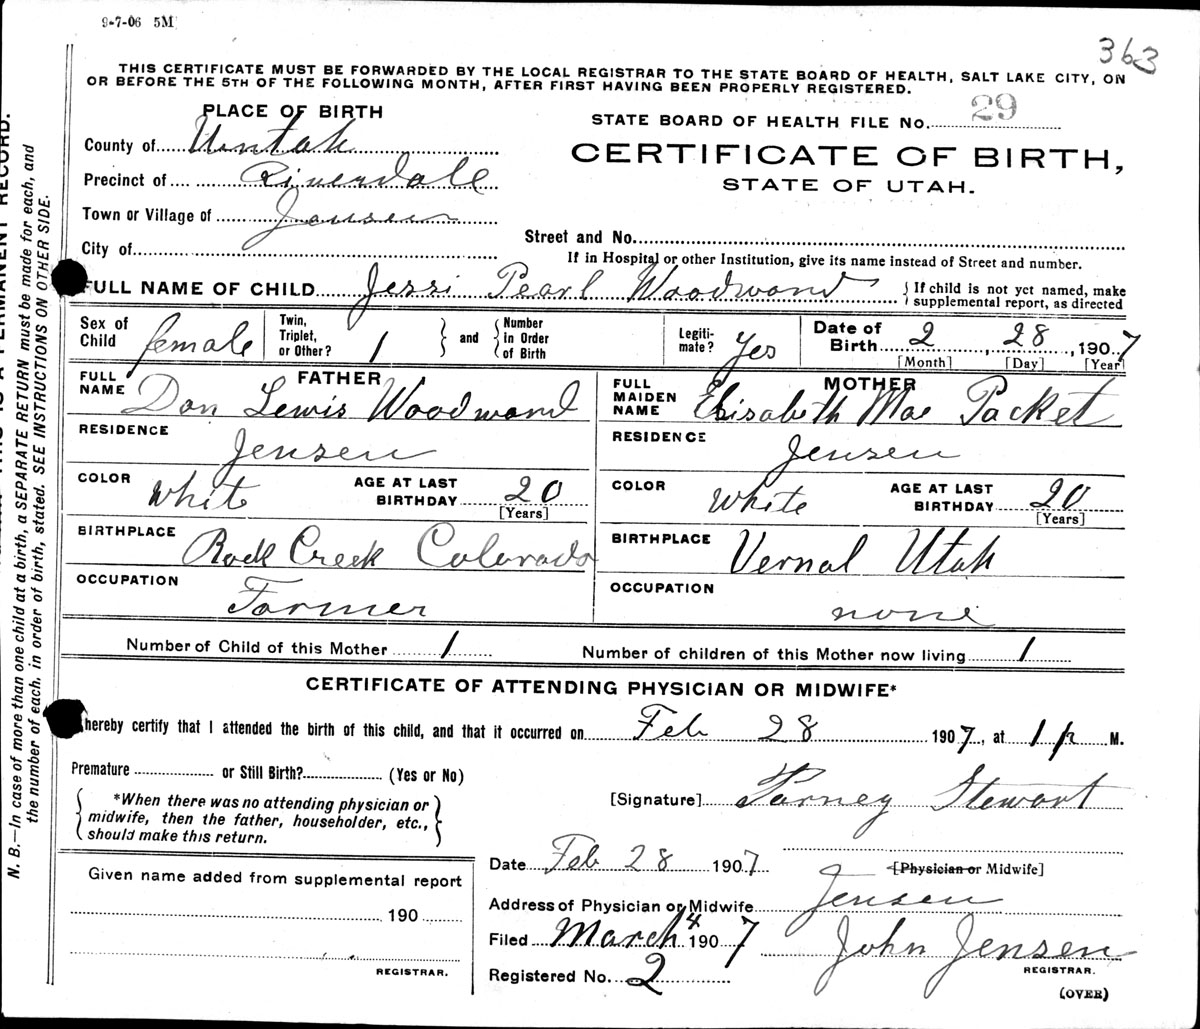 9-7-06 5M
363
THIS CERTIFICATE MUST BE FORWARDED BY THE LOCAL REGISTRAR TO THE STATE BOARD OF HEALTH, SALT LAKE CITY, ON
OR BEFORE THE 5TH OF THE FOLLOWING MONTH, AFTER FIRST HAVING BEEN PROPERLY REGISTERED.
PLACE OF BIRTH
STATE BOARD OF HEALTH FILE No. 29
County of Uintah
CERTIFICATE OF BIRTH,
Precinct of Riverdale
STATE OF UTAH.
Town or Village of Jensen
City of
Street and No.
If in Hospital or other Institution, give its name instead of Street and number.
FULL NAME OF CHILD Jessi Pearl Woodward
{ If child is not yet named, make
supplemental report, as directed
Sex of Child female
Twin, Triplet, or Other? 1
and
Number in Order of Birth
Legiti-mate? Yes
Date of Birth 2, 28, 1907
[Month] [Day] [Year]
FATHER
FULL NAME Don Lewis Woodward
MOTHER
FULL MAIDEN NAME Elisabeth Mae Packet
RESIDENCE Jensen
RESIDENCE Jensen
COLOR White
AGE AT LAST BIRTHDAY 20
[Years]
COLOR White
AGE AT LAST BIRTHDAY 20
[Years]
BIRTHPLACE Rock Creek Colorado
BIRTHPLACE Vernal Utah
OCCUPATION Farmer
OCCUPATION none
Number of Child of this Mother 1
Number of children of this Mother now living 1
CERTIFICATE OF ATTENDING PHYSICIAN OR MIDWIFE*
hereby certify that I attended the birth of this child, and that it occurred on Feb 28 1907, at 1 p M.
Premature or Still Birth? (Yes or No)
*When there was no attending physician or
midwife, then the father, householder, etc.,
should make this return.
[Signature] Stewart
Date Feb 28 1907
[Physician or Midwife]
Given name added from supplemental report
190
REGISTRAR.
Address of Physician or Midwife Jensen
Filed March 4 1907
John Jensen
REGISTRAR.
Registered No. 2
(OVER)
N. B.—In case of more than one child at a birth, a SEPARATE RETURN must be made for each, and
the number of each, in order of birth, stated. SEE INSTRUCTIONS ON OTHER SIDE.
THIS IS A PERMANENT RECORD.